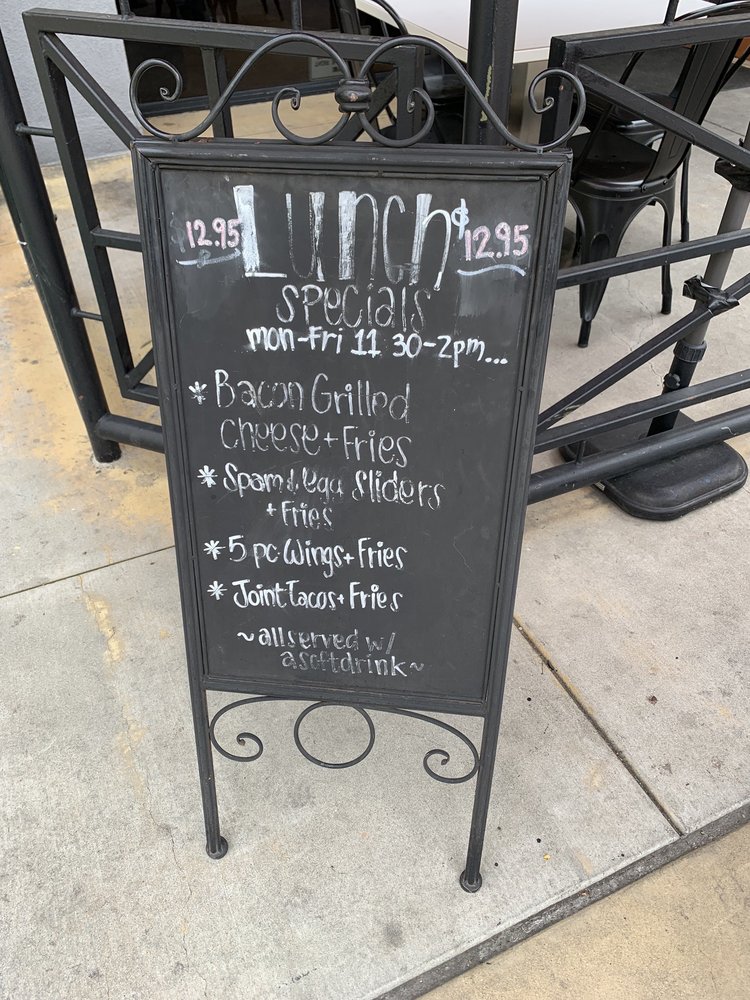 12.95 Lunch $12.95
Specials
mon-Fri 11 30-2pm...
* Bacon Grilled
Cheese + Fries
* Spam & egg Sliders
+ Fries
* 5 pc Wings + Fries
* Joint Tacos + Fries
~ all served w/
a soft drink ~